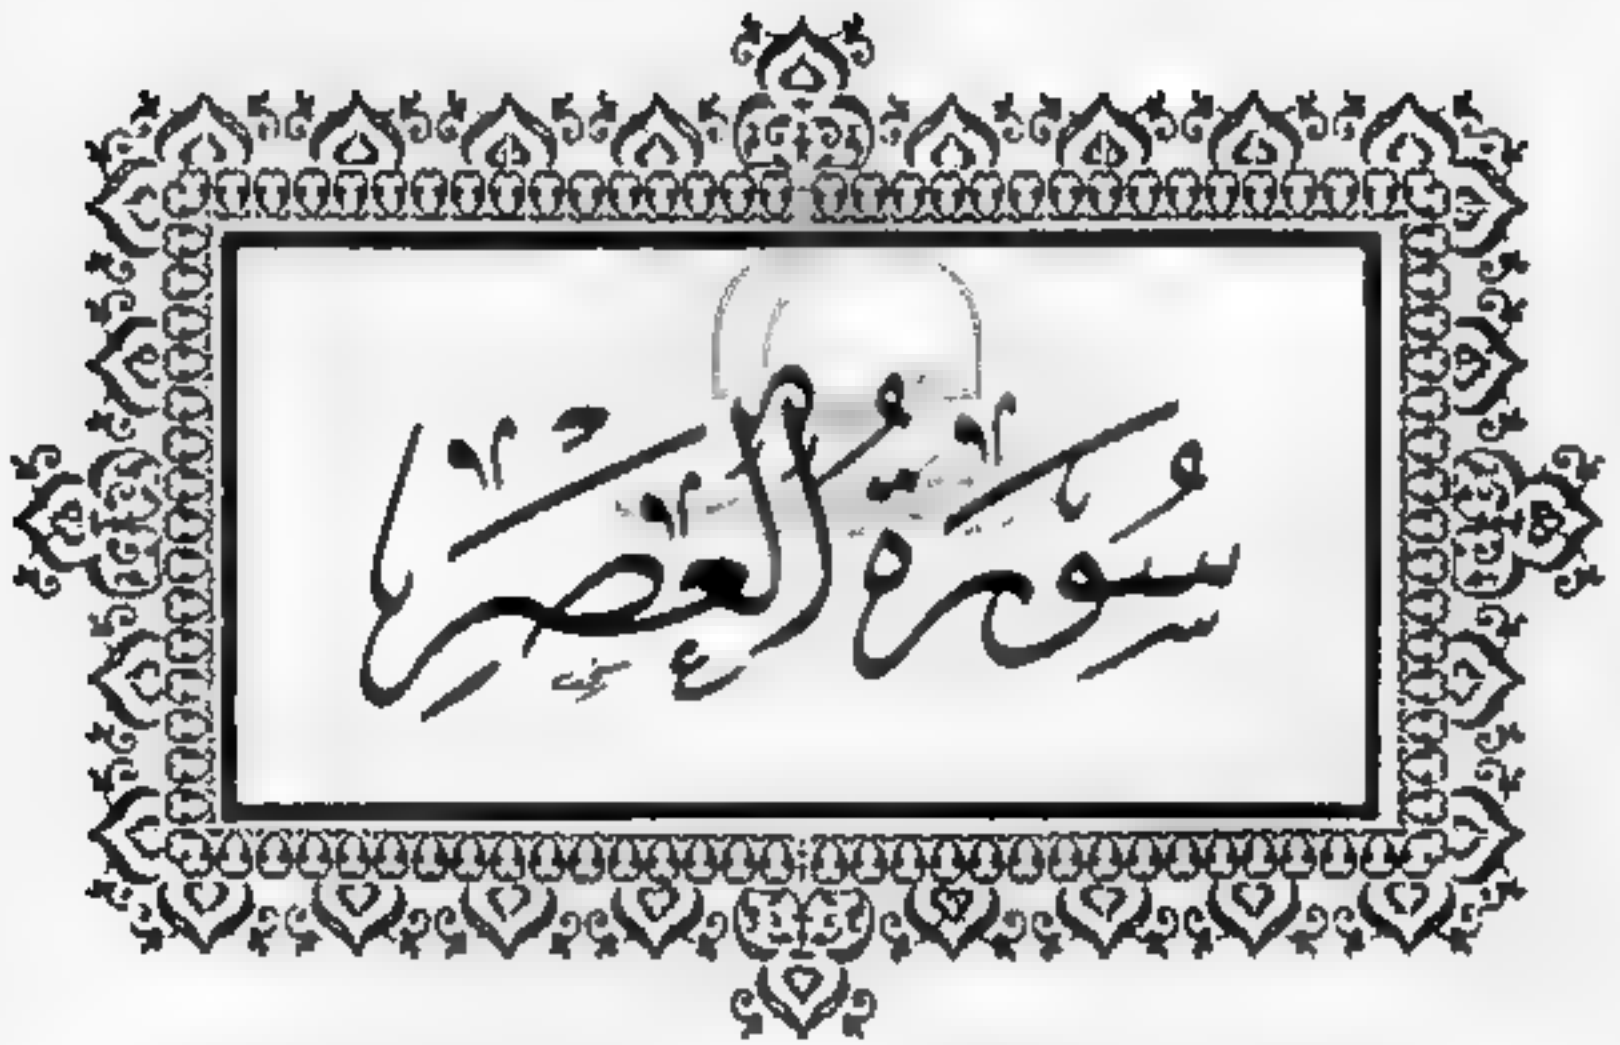 سُورَة العَصرِ